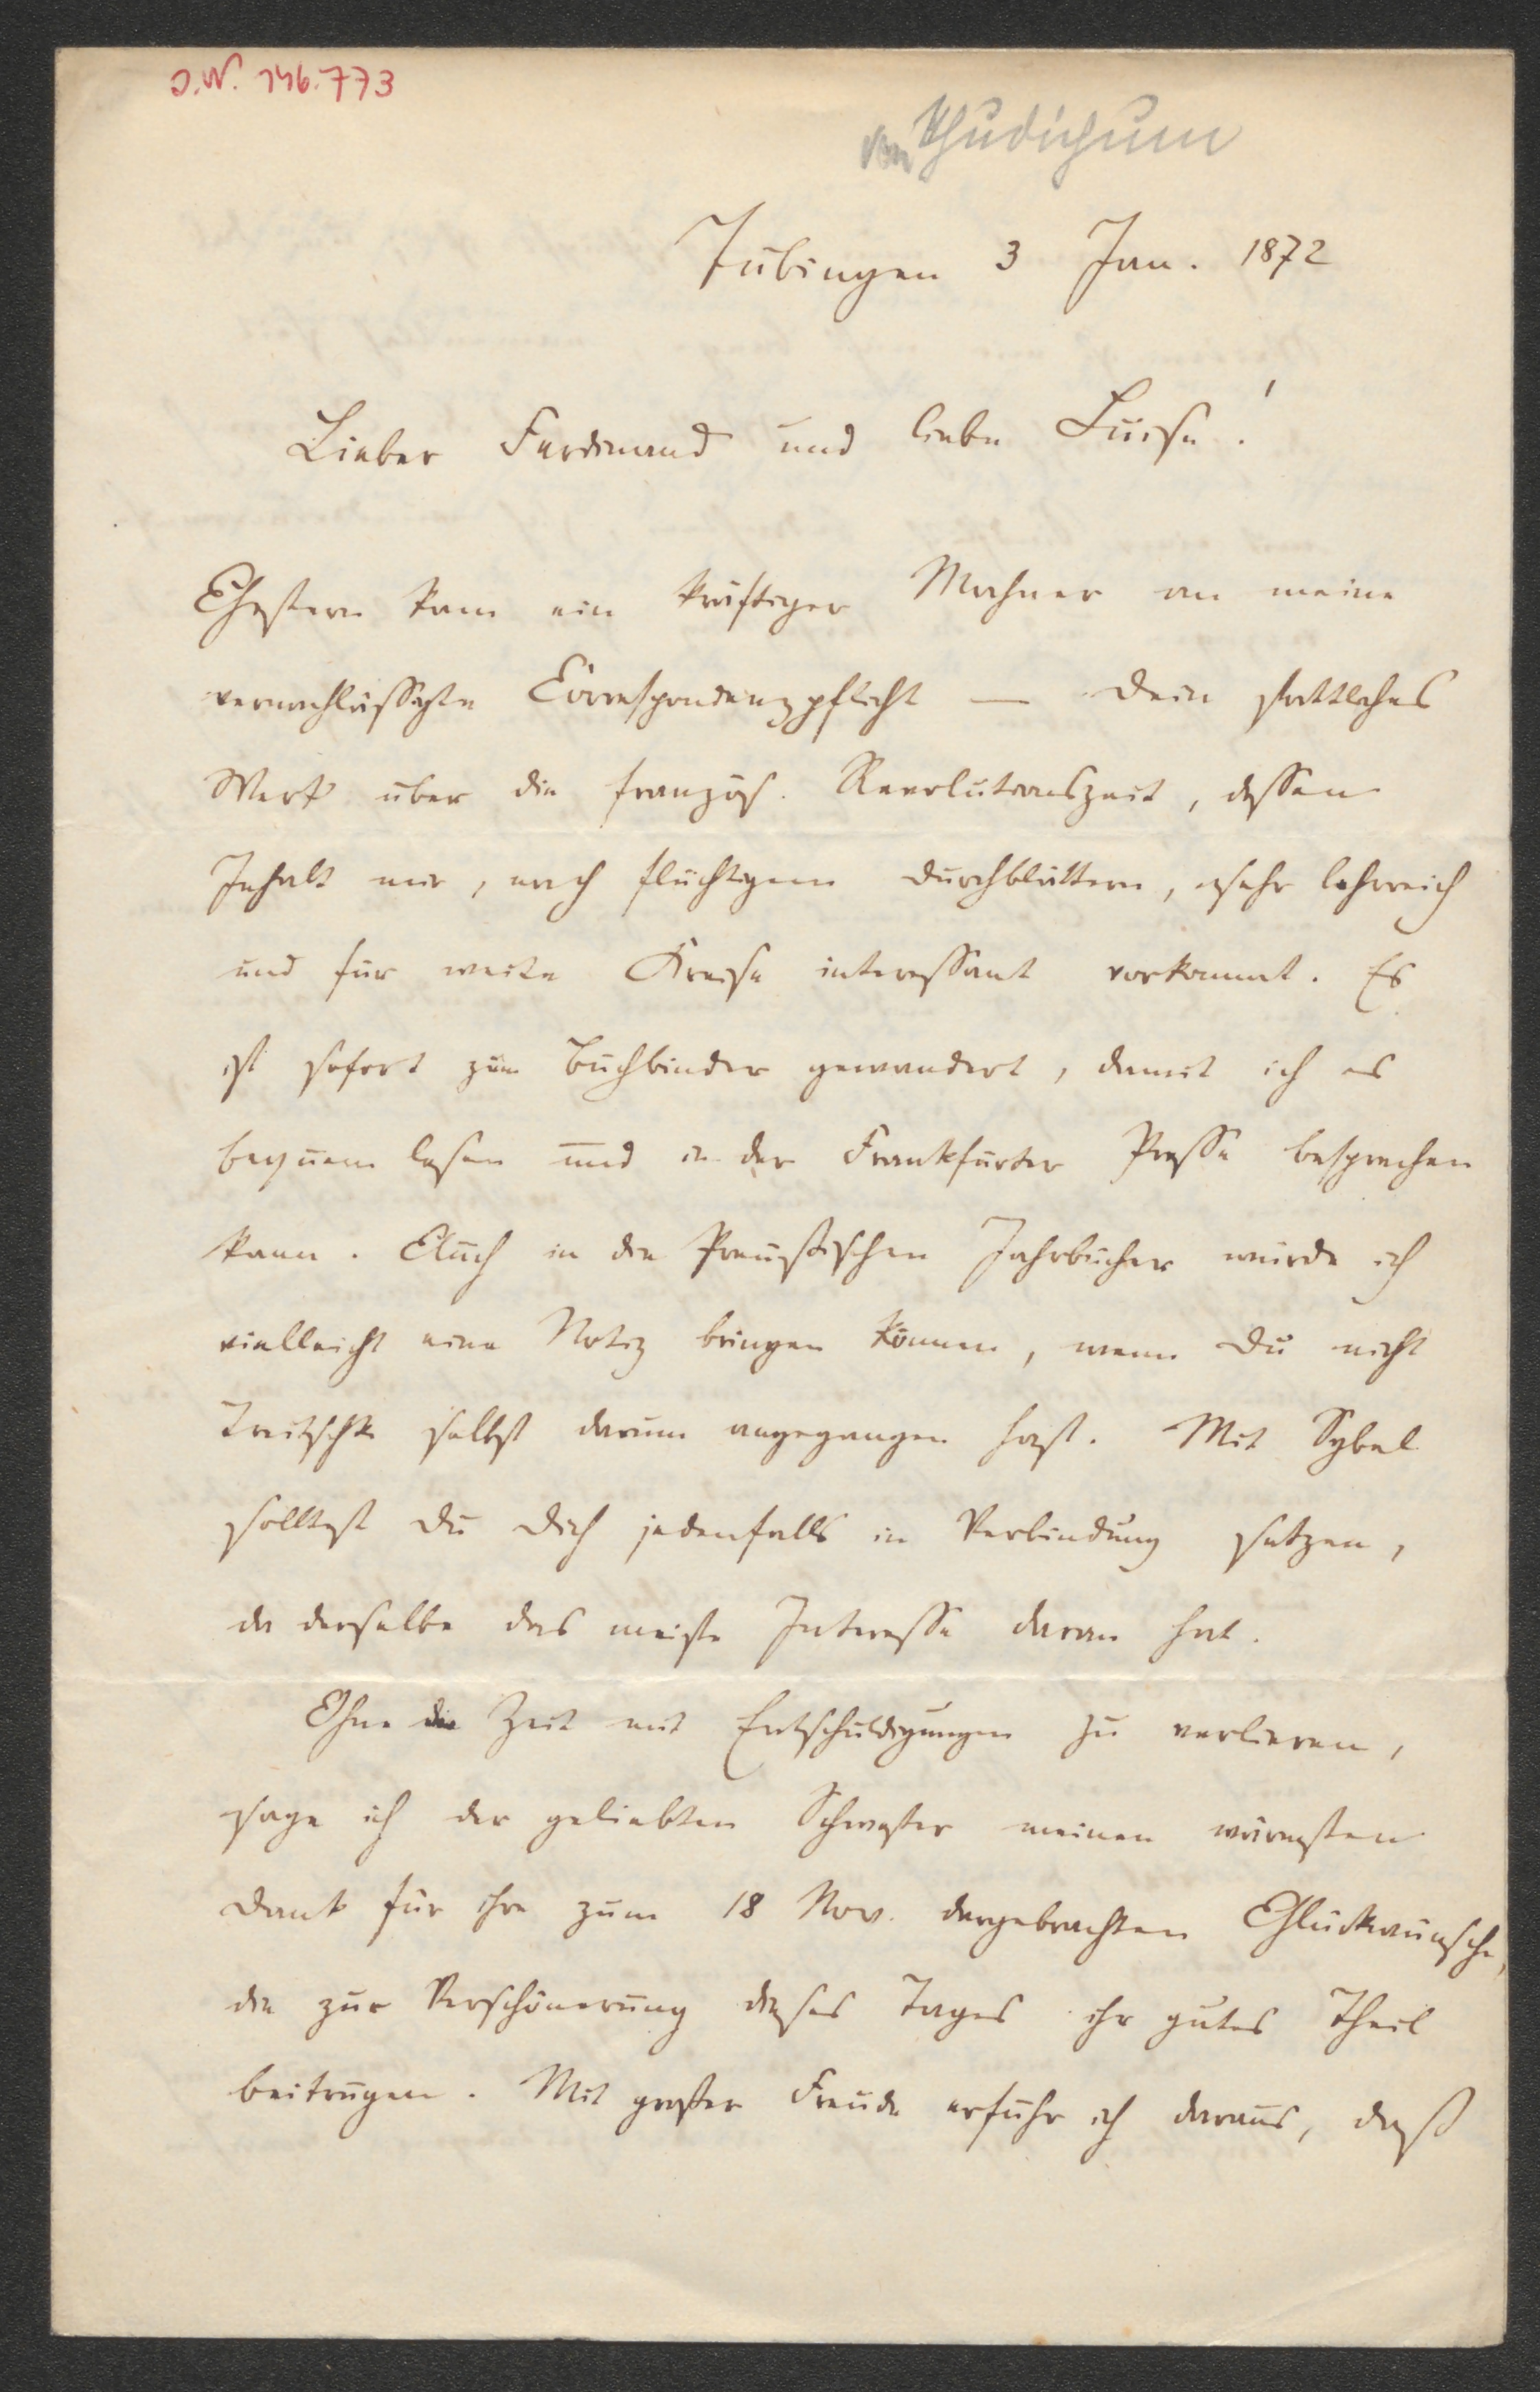 J.N. 146.773
von Thudichum
Tübingen 3 Jan. 1872
Lieber Ferdinand und liebe Luise!
Gestern kam ein kräftiger Mahner an meine
vernachlässigte Correspondenzpflicht — Dein stattliches
Werk über die französ. Revolutionszeit, dessen
Inhalt mir, nach flüchtigem Durchblättern, sehr lehrreich
und für weite Kreise interessant vorkommt. Es
ist sofort zum Buchbinder gewandert, damit ich es
bequem lesen und in der Frankfurter Presse besprechen
kann. Auch in die Preußischen Jahrbücher würde ich
vielleicht eine Notiz bringen können, wenn Du nicht
Treitschke selbst darum angegangen hast. Mit Sybel
solltest Du Dich jedenfalls in Verbindung setzen,
da derselbe das meiste Interesse daran hat.
Ohne die Zeit mit Entschuldigungen zu verlieren,
sage ich der geliebten Schwester meinen wärmsten
Dank für ihre zum 18 Nov. dargebrachten Glückwünsche,
die zur Verschönerung dieses Tages ihr gutes Theil
beitrugen. Mit großer Freude erfuhr ich daraus, daß